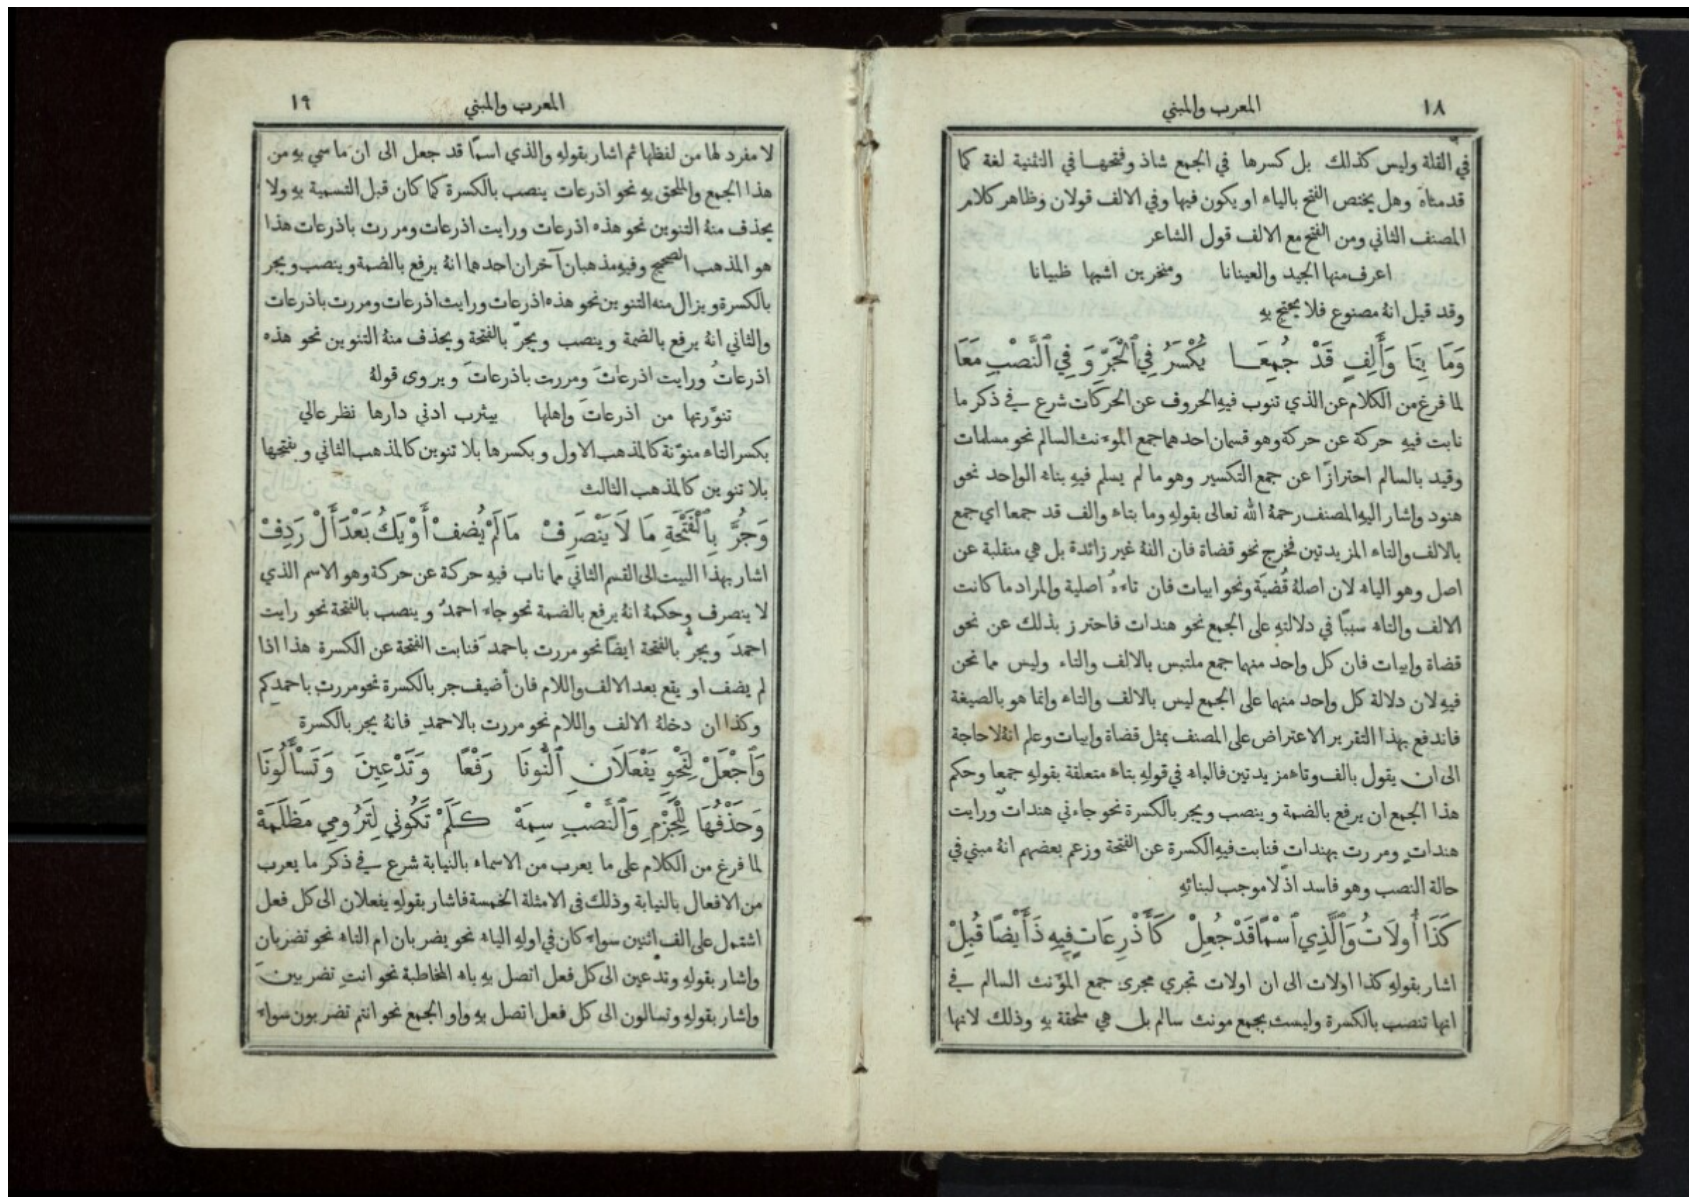 ١٨
المعرب والمبني
في القلة وليس كذلك بل كسرها في الجمع شاذ وفتحها في التثنية لغة كما
قدمناه وهل يختص الفتح بالياء او يكون فيها وفي الالف قولان وظاهر كلام
المصنف الثاني ومن الفتح مع الالف قول الشاعر
اعرف منها الجيد والعينانا ومنخرين اشبها ظبيانا
وقد قيل انهُ مصنوع فلا يحتج بهِ
وَمَا بِتَا وَأَلِفٍ قَدْ جُمِعَا يُكْسَرُ فِي ٱلْجَرِّ وَفِي ٱلنَّصْبِ مَعَا
لما فرغ من الكلام عن الذي تنوب فيهِ الحروف عن الحركات شرع في ذكر ما
نابت فيهِ حركة عن حركة وهو قسمان احدهما جمع المؤنث السالم نحو مسلمات
وقيد بالسالم احترازًا عن جمع التكسير وهو ما لم يسلم فيهِ بناء الواحد نحو
هنود واشار اليهِ المصنف رحمهُ الله تعالى بقولهِ وما بتاء والف قد جمعا اي جمع
بالالف والتاء المزيدتين فخرج نحو قضاة فان الفهُ غير زائدة بل هي منقلبة عن
اصل وهو الياء لان اصلهُ قُضَيَة ونحو ابيات فان تاءهُ اصلية والمراد ما كانت
الالف والتاء سببًا في دلالتهِ على الجمع نحو هندات فاحترز بذلك عن نحو
قضاة وابيات فان كل واحد منهما جمع ملتبس بالالف والتاء وليس مما نحن
فيهِ لان دلالة كل واحد منهما على الجمع ليس بالالف والتاء وانما هو بالصيغة
فاندفع بهذا التقرير الاعتراض على المصنف بمثل قضاة وابيات وعلم انهُ لا حاجة
الى ان يقول بالف وتاء مزيدتين فالباء في قولهِ بتاء متعلقة بقولهِ جمعا وحكم
هذا الجمع ان يرفع بالضمة وينصب ويجر بالكسرة نحو جاءني هنداتٌ ورايت
هنداتٍ ومررت بهندات فنابت فيهِ الكسرة عن الفتحة وزعم بعضهم انهُ مبني في
حالة النصب وهو فاسد اذ لا موجب لبنائهِ
كَذَا أُولَاتُ وَٱلَّذِي ٱسْمًا قَدْ جُعِلْ كَأَذْرِعَاتٍ فِيهِ ذَا أَيْضًا قُبِلْ
اشار بقولهِ كذا اولات الى ان اولات تجري مجرى جمع المؤنث السالم في
انها تنصب بالكسرة وليست بجمع مونث سالم بل هي ملحقة بهِ وذلك لانها
١٩
المعرب والمبني
لا مفرد لها من لفظها ثم اشار بقولهِ والذي اسمًا قد جعل الى ان ما سمي بهِ من
هذا الجمع والملحق بهِ نحو اذرعات ينصب بالكسرة كما كان قبل التسمية بهِ ولا
يحذف منهُ التنوين نحو هذه اذرعات ورايت اذرعات ومررت باذرعات هذا
هو المذهب الصحيح وفيهِ مذهبان آخران احدهما انهُ يرفع بالضمة وينصب ويجر
بالكسرة ويزال منه التنوين نحو هذه اذرعات ورايت اذرعات ومررت باذرعات
والثاني انهُ يرفع بالضمة وينصب ويجرّ بالفتحة ويحذف منهُ التنوين نحو هذه
اذرعاتُ ورايت اذرعاتَ ومررت باذرعاتَ ويروى قولهُ
تنوّرتها من اذرعات واهلها بيثرب ادنى دارها نظر عالي
بكسر التاء منوّنة كالمذهب الاول وبكسرها بلا تنوين كالمذهب الثاني وبفتحها
بلا تنوين كالمذهب الثالث
وَجُرَّ بِٱلْفَتْحَةِ مَا لَا يَنْصَرِفْ مَا لَمْ يُضَفْ أَوْ يَكُ بَعْدَ أَلْ رَدِفْ
اشار بهذا البيت الى القسم الثاني مما ناب فيهِ حركة عن حركة وهو الاسم الذي
لا ينصرف وحكمهُ انهُ يرفع بالضمة نحو جاء احمدُ وينصب بالفتحة نحو رايت
احمدَ ويجرّ بالفتحة ايضًا نحو مررت باحمدَ فنابت الفتحة عن الكسرة هذا اذا
لم يضف او يقع بعد الالف واللام فان أضيف جر بالكسرة نحو مررت باحمدِكم
وكذا ان دخلهُ الالف واللام نحو مررت بالاحمدِ فانهُ يجر بالكسرة
وَٱجْعَلْ لِنَحْوِ يَفْعَلَانِ ٱلنُّونَا رَفْعًا وَتَدْعِينَ وَتَسْأَلُونَا
وَحَذْفُهَا لِلْجَزْمِ وَٱلنَّصْبِ سِمَهْ كَلَمْ تَكُونِي لِتَرُومِي مَظْلَمَهْ
لما فرغ من الكلام على ما يعرب من الاسماء بالنيابة شرع في ذكر ما يعرب
من الافعال بالنيابة وذلك في الامثلة الخمسة فاشار بقولهِ يفعلان الى كل فعل
اشتمل على الف اثنين سواء كان في اولهِ الياء نحو يضربان ام التاء نحو تضربان
واشار بقولهِ وتدعين الى كل فعل اتصل بهِ ياء المخاطبة نحو انتِ تضربينَ
واشار بقولهِ وتسالون الى كل فعل اتصل بهِ واو الجمع نحو انتم تضربون سواء